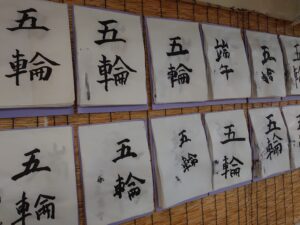 五輪
五輪
五輪
端午
五輪
五輪
五輪
五輪
五輪
五輪